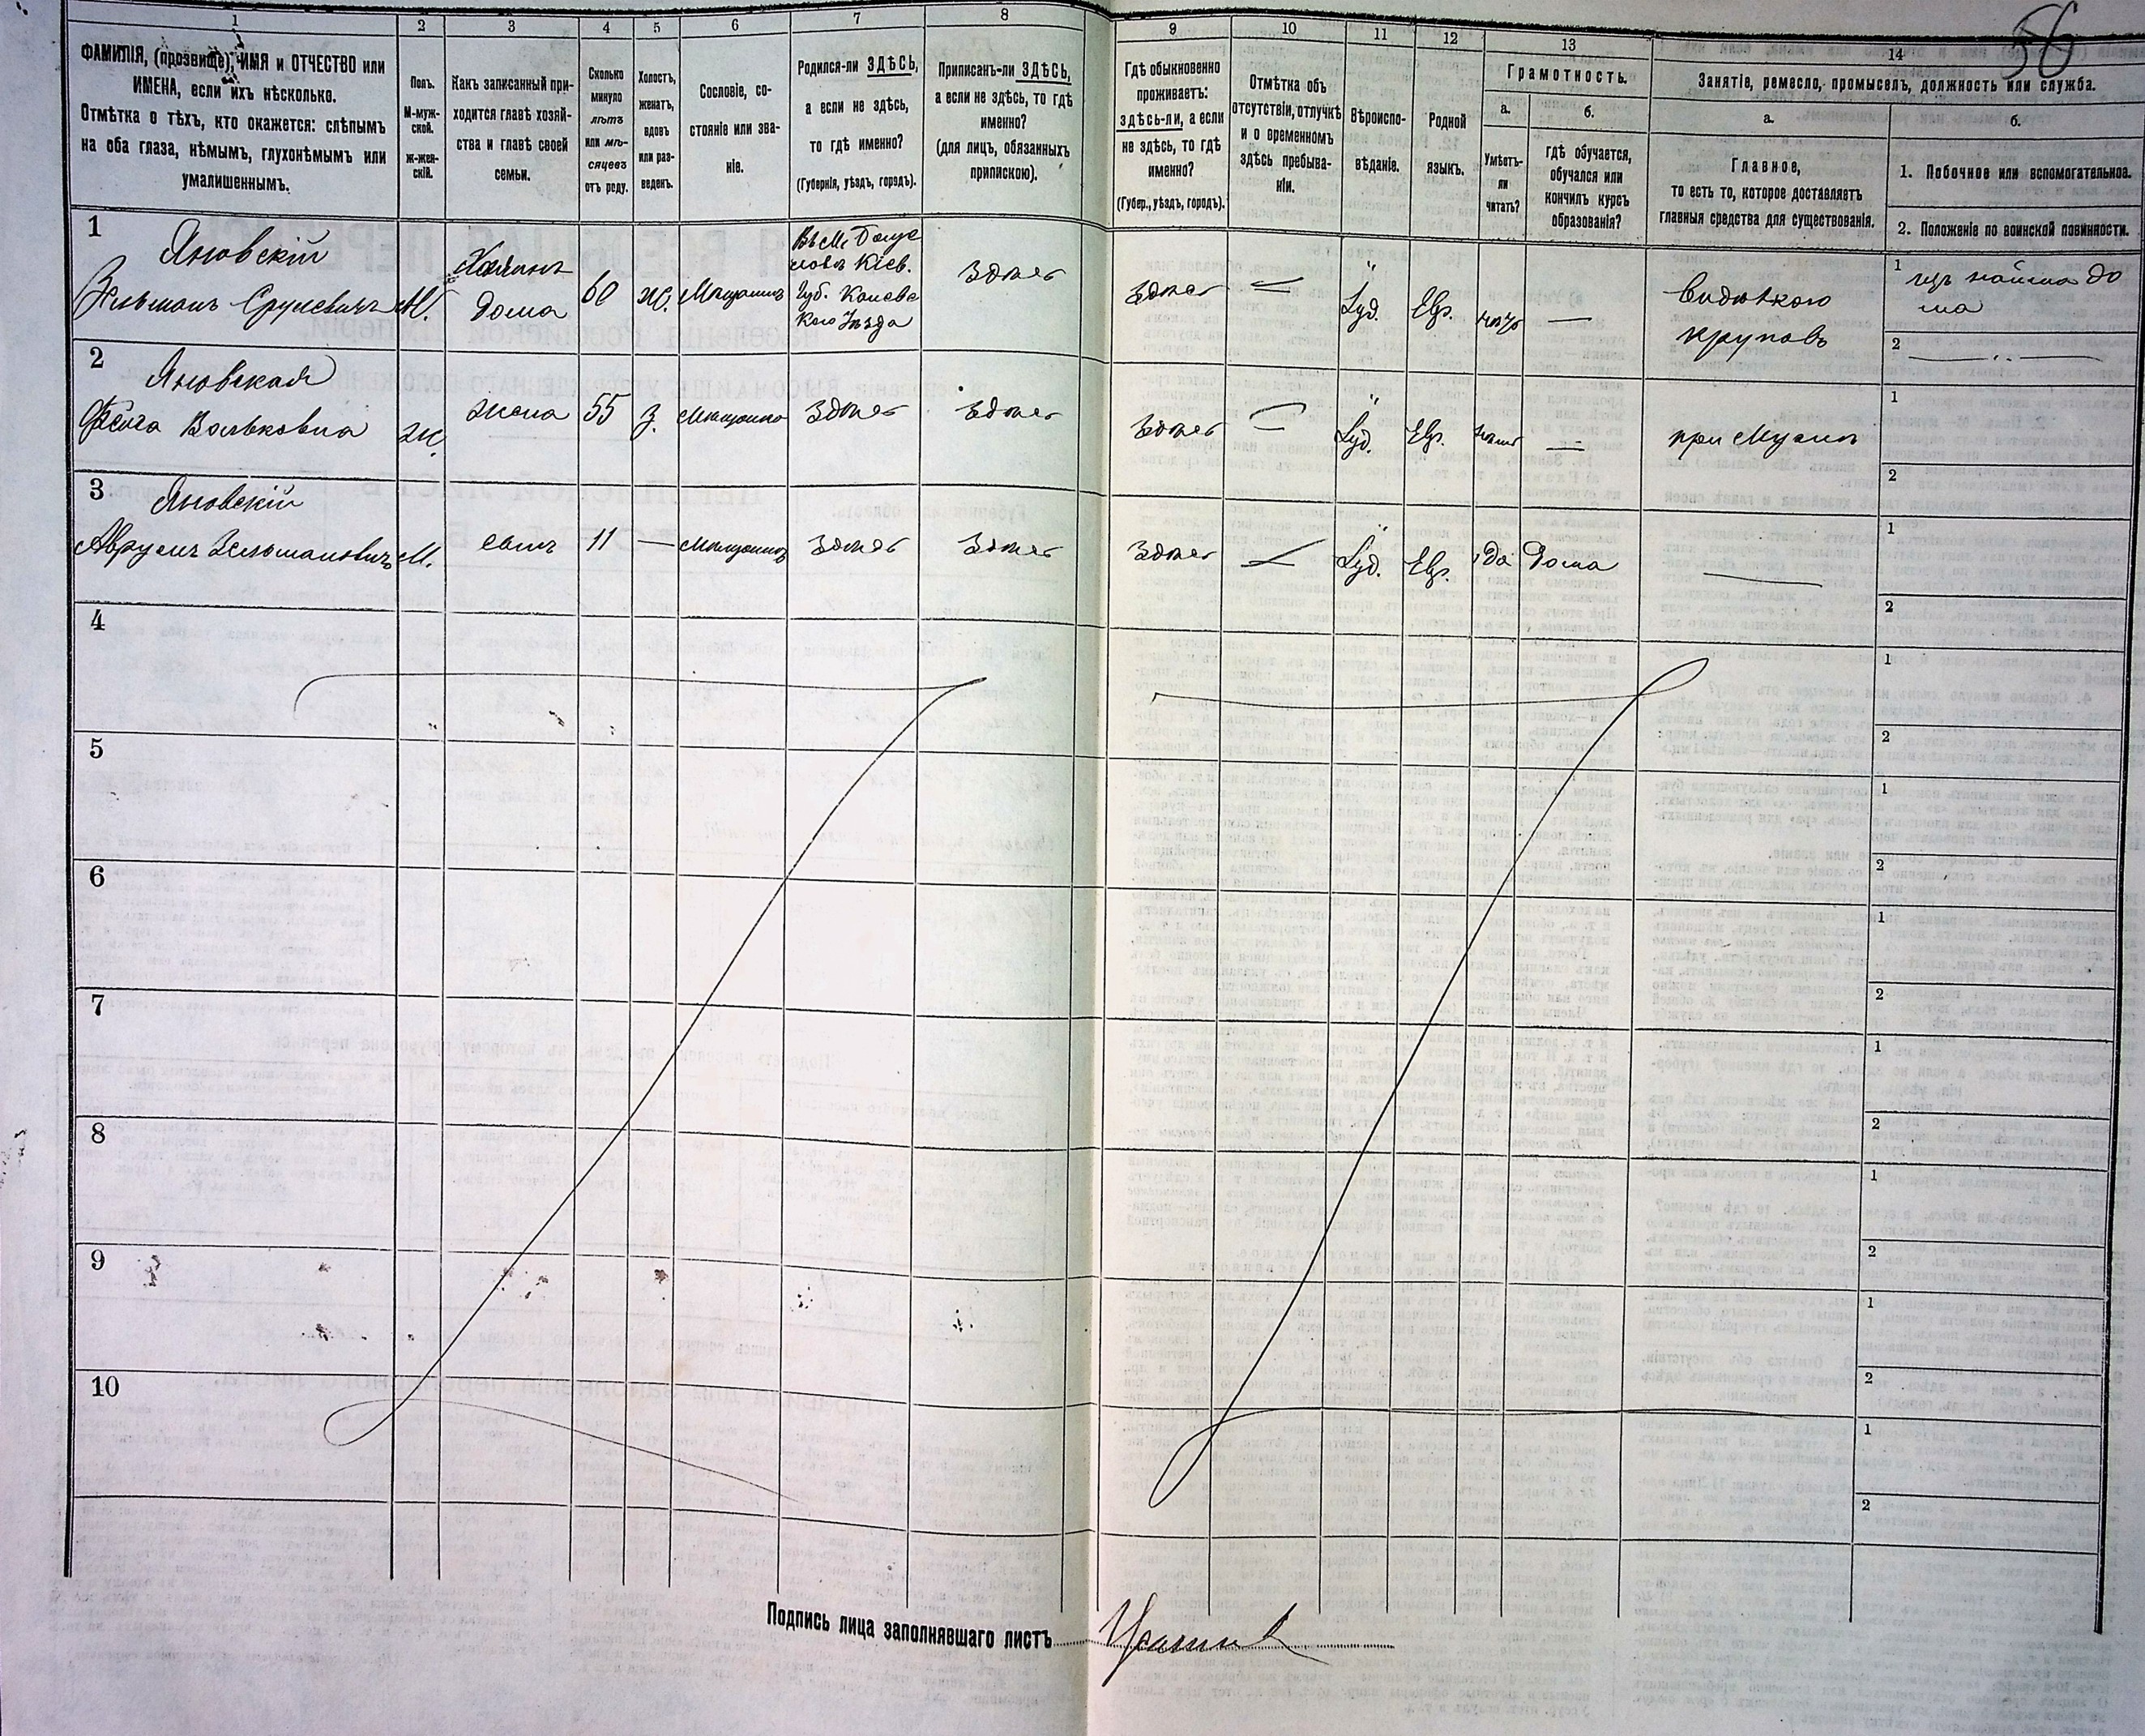 56
1
2
3
4
5
6
7
8
9
10
11
12
13
14
ФАМИЛІЯ, (прозвище), ИМЯ и ОТЧЕСТВО или
ИМЕНА, если ихъ нѣсколько.
Отмѣтка о тѣхъ, кто окажется: слѣпымъ
на оба глаза, нѣмымъ, глухонѣмымъ или
умалишеннымъ.
Полъ.
М-муж-
ской.
ж-жен-
скій.
Какъ записанный при-
ходится главѣ хозяй-
ства и главѣ своей
семьи.
Сколько
минуло
лѣтъ
или мѣ-
сяцевъ
отъ роду.
Холостъ,
женатъ,
вдовъ
или раз-
веденъ.
Сословіе, со-
стояніе или зва-
ніе.
Родился-ли ЗДѢСЬ,
а если не здѣсь,
то гдѣ именно?
(Губернія, уѣздъ, городъ).
Приписанъ-ли ЗДѢСЬ,
а если не здѣсь, то гдѣ
именно?
(для лицъ, обязанныхъ
припискою).
Гдѣ обыкновенно
проживаетъ:
здѣсь-ли, а если
не здѣсь, то гдѣ
именно?
(Губер., уѣздъ, городъ).
Отмѣтка объ
отсутствіи, отлучкѣ
и о временномъ
здѣсь пребыва-
ніи.
Вѣроиспо-
вѣданіе.
Родной
языкъ.
Грамотность.
а.
Умѣетъ-
ли
читать?
б.
гдѣ обучается,
обучался или
кончилъ курсъ
образованія?
Занятіе, ремесло, промыселъ, должность или служба.
а.
Главное,
то есть то, которое доставляетъ
главныя средства для существованія.
б.
1. Побочное или вспомогательное.
2. Положеніе по воинской повинности.
1
Яновскій
Зельманъ Срулевичъ
М.
Хозяинъ
дома
60
ж.
Мѣщанинъ
Въ М. Богус
лавѣ Кіев.
Губ. Каневс
каго Уѣзда
здѣсь
здѣсь
Іуд.
Евр.
нѣтъ
—
круповъ
1
изъ найма до
ма
2
2
Яновская
Вольковна
Ж.
жена
55
З.
Мѣщанка
здѣсь
здѣсь
здѣсь
Іуд.
Евр.
—
при Мужѣ
1
2
3
Яновскій
Аврумъ Зельмановичъ
М.
сынъ
11
—
Мѣщанинъ
здѣсь
здѣсь
здѣсь
Іуд.
Евр.
да
дома
1
2
4
1
2
5
1
2
6
1
2
7
1
2
8
1
2
9
1
2
10
1
2
Подпись лица заполнявшаго листъ